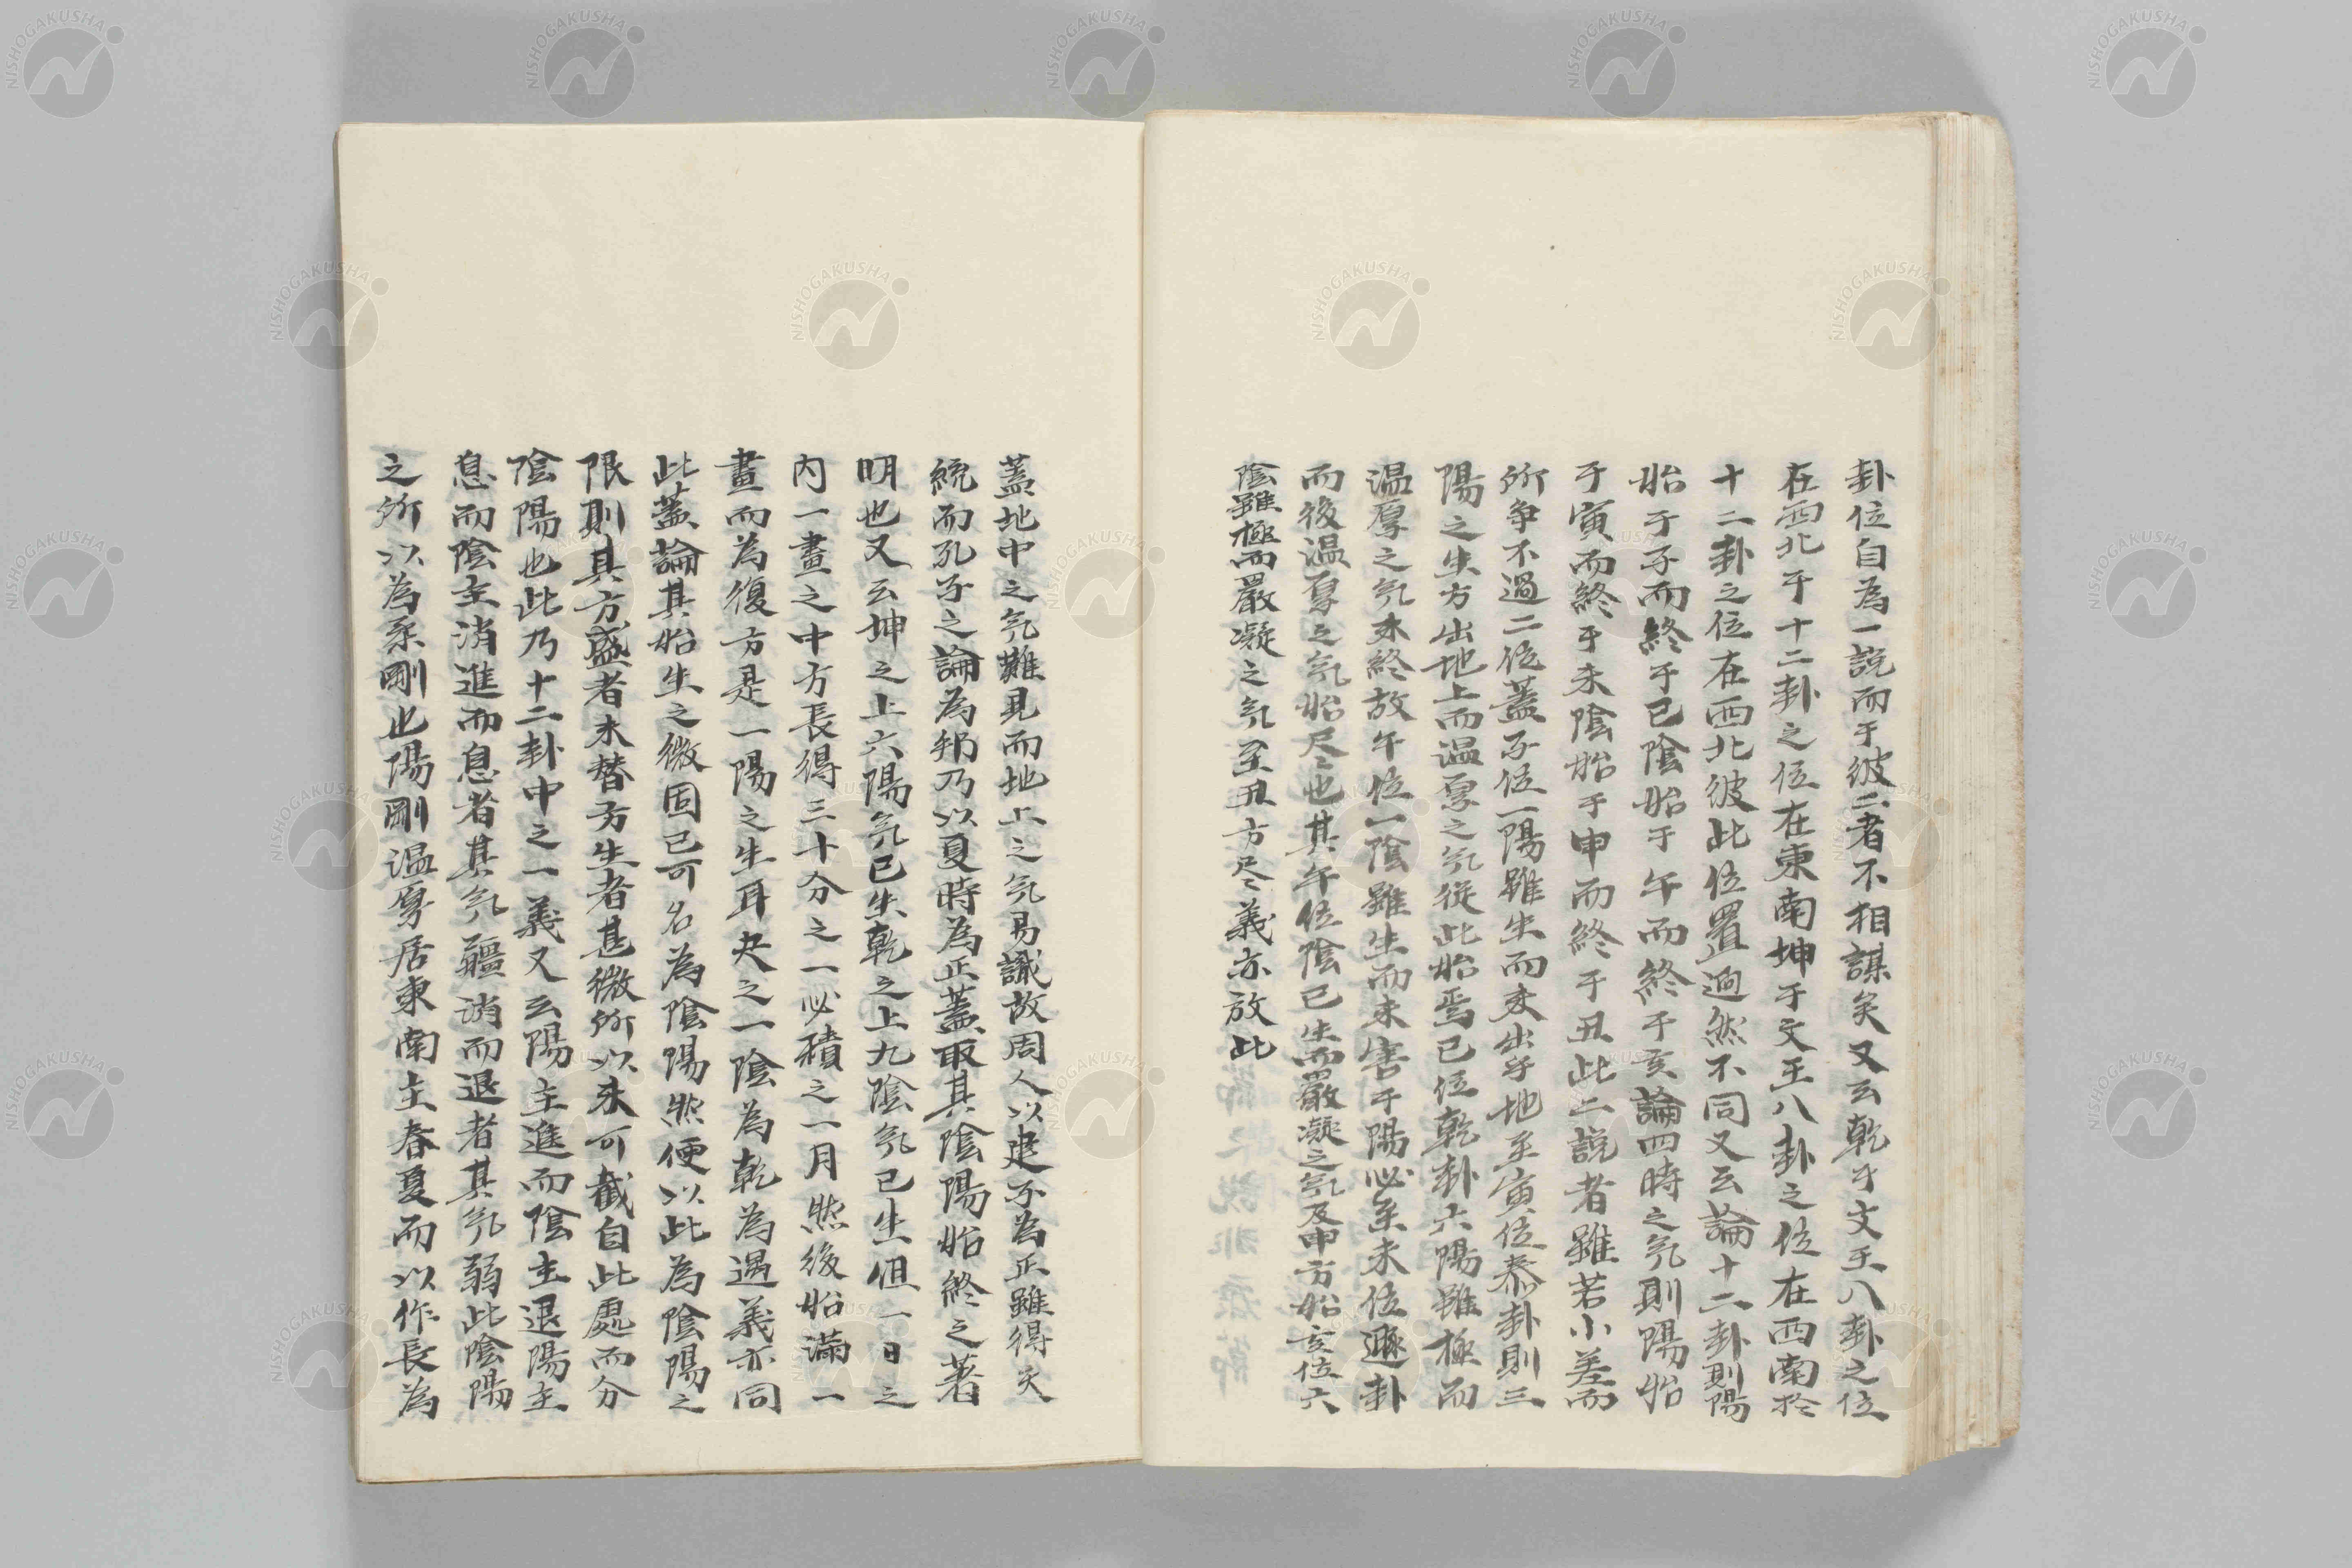 卦位自為一說而于彼二者不相謀矣又云乾于文王八卦之位
在西北于十二卦之位在東南坤于文王八卦之位在西南於
十二卦之位在西北彼此位置迥然不同又云論十二卦則陽
始于子而終于巳陰始于午而終于亥論四時之气則陽始
于寅而終于未陰始于申而終于丑此二說者雖若小差而
所争不過二位蓋子位一陽雖生而未出乎地至寅位泰卦則三
陽之生方出地上而温厚之气從此始焉巳位乾卦六陽雖極而
温厚之气未終故午位一陰雖生而未害于陽必至未位遯卦
而後温厚之气始尽也其午位陰已生而嚴凝之气及申方始亥位六
陰雖極而嚴凝之气至丑方尽義亦放此
蓋地中之气難見而地上之气易識故周人以建子為正雖得天
統而孔子之論為邦乃以夏時為正蓋取其陰陽始終之著
明也又云坤之上六陽气已生乾之上九陰气已生但一日之
内一畫之中方長得三十分之一必積之一月然後始滿一
畫而為復方是一陽之生耳夬之一陰為乾為遇義亦同
此蓋論其始生之微固已可名為陰陽然便以此為陰陽之
限則其方盛者未替方生者甚微所以未可截自此處而分
陰陽也此乃十二卦中之一義又云陽主進而陰主退陽主
息而陰主消進而息者其气疆消而退者其气弱此陰陽
之所以為柔剛也陽剛温厚居東南主春夏而以作長為
NISHOGAKUSHA